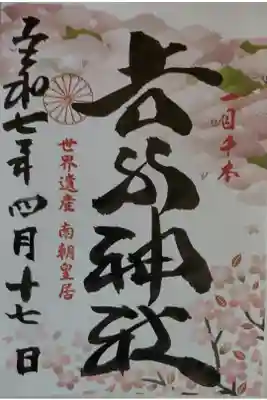 一目千本
吉水神社
世界遺産 南朝皇居
令和七年四月十七日